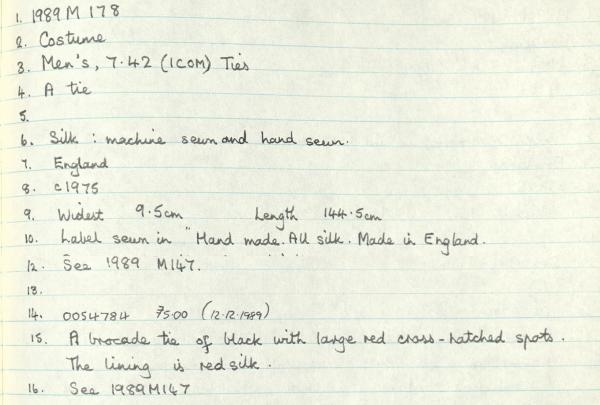 1. 1989 M 178
2. Costume
3. Men's, 7.42 (ICOM) Ties
4. A tie
5.
6. Silk : machine sewn and hand sewn.
7. England
8. c1975
9. Widest 9.5cm Length 144.5cm
10. Label sewn in "Hand made. All silk. Made in England.
12. See 1989 M147.
13.
14. 0054784 75.00 (12.12.1989)
15. A brocade tie of black with large red cross-hatched spots.
The lining is red silk.
16. See 1989M147